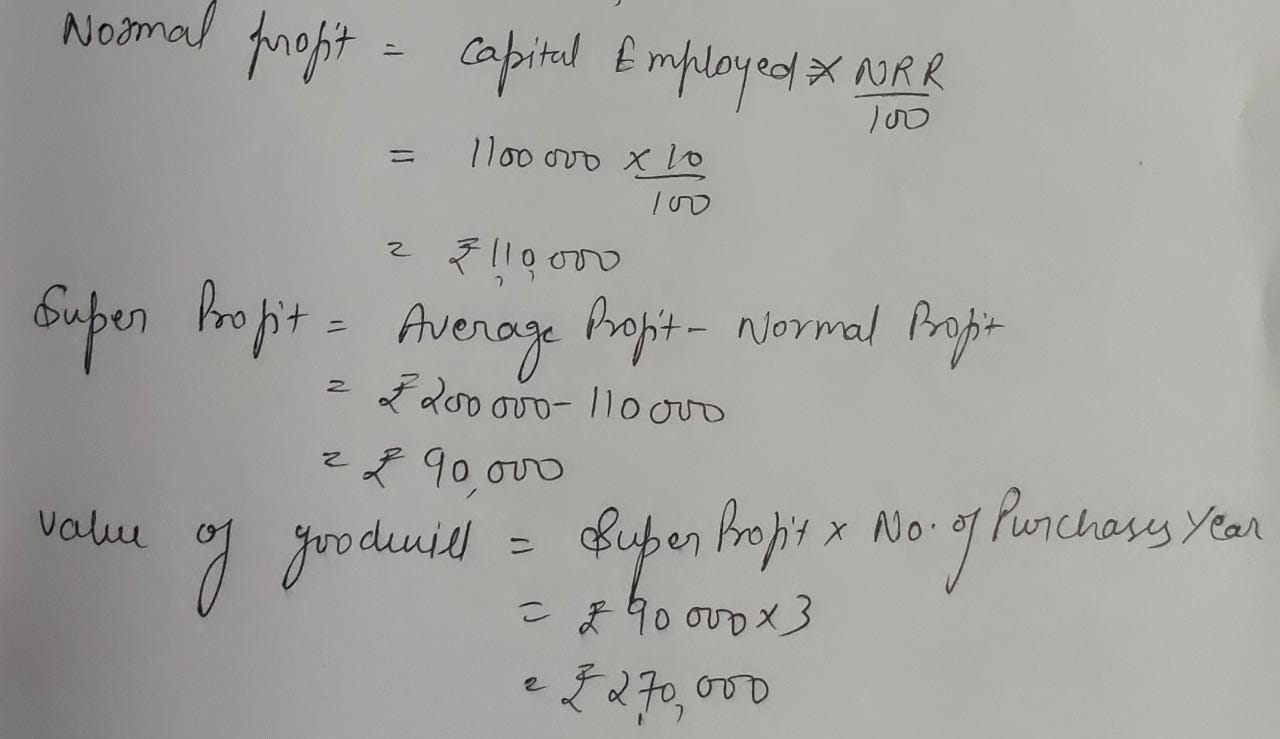 Normal profit = Capital Employed × NRR/100
= 1100 000 × 10/100
= ₹ 1,10,000
Super Profit = Average Profit - Normal Profit
= ₹ 200 000 - 110 000
= ₹ 90,000
Value of goodwill = Super Profit × No. of Purchases Year
= ₹ 90 000 × 3
= ₹ 2,70,000